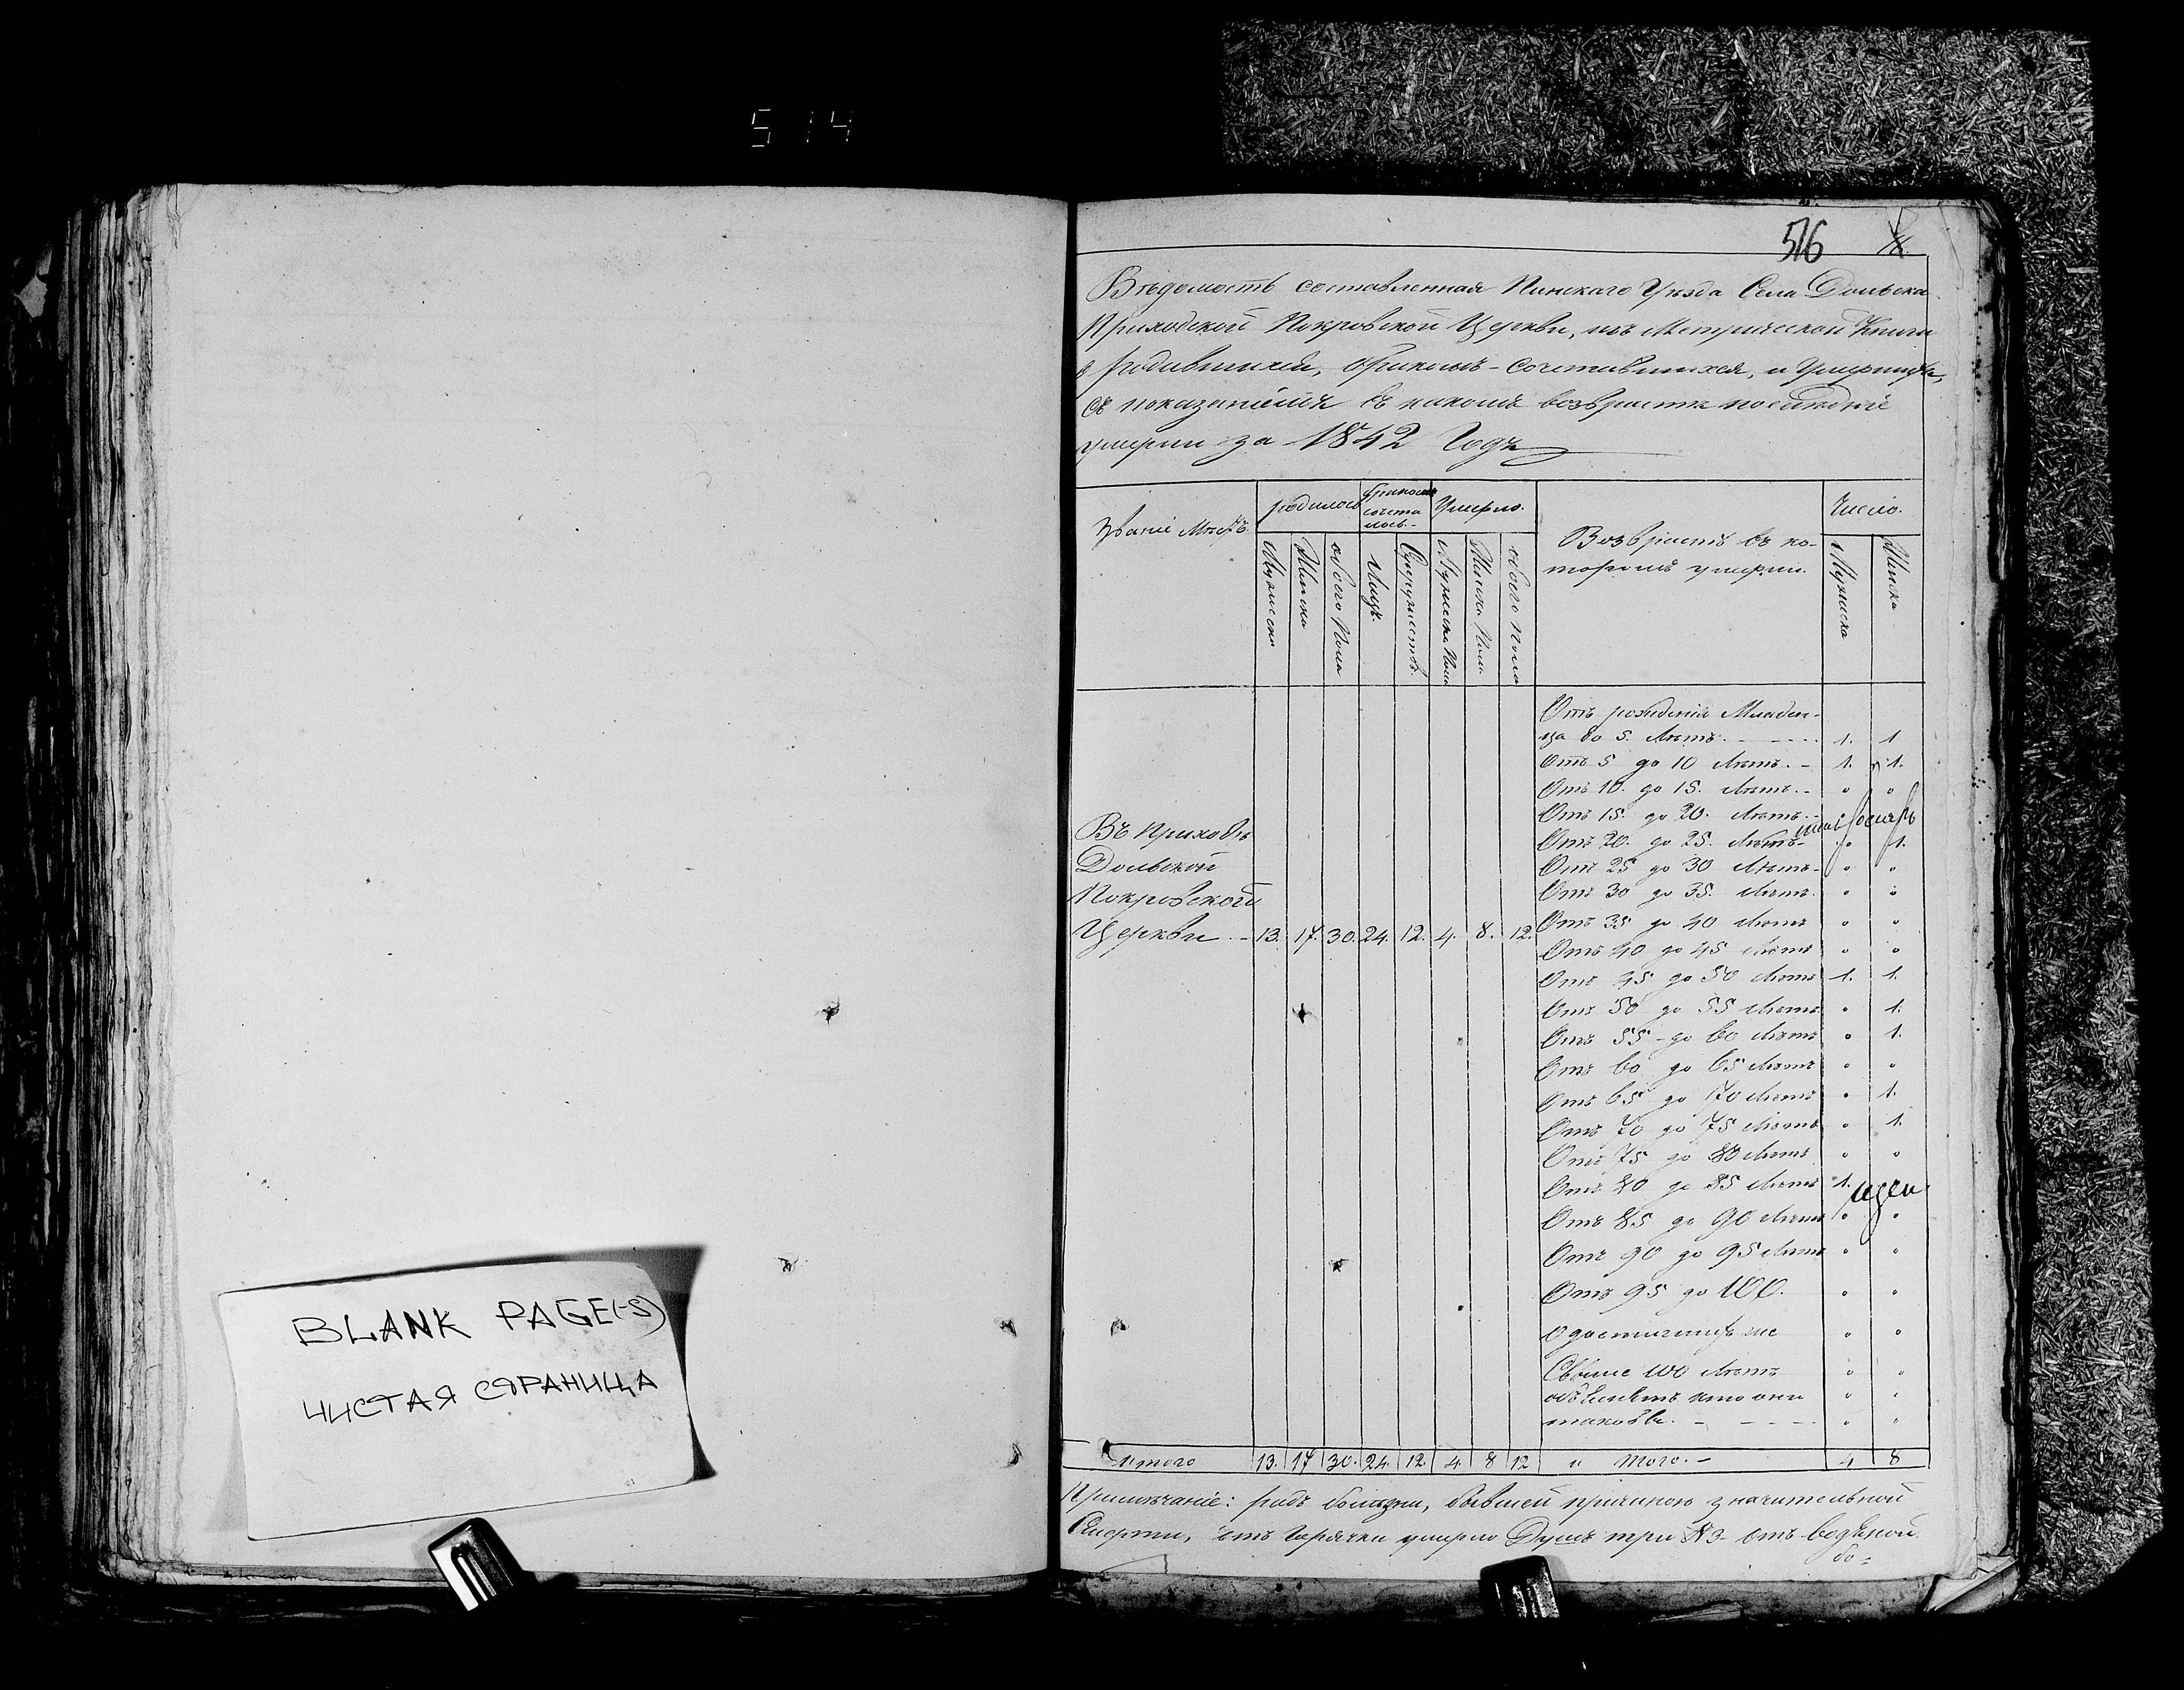 514
516
Вѣдомость составленная Пинскаго Уѣзда Села Дольска
Приходской Покровской Церкви, изъ Метрической Книги
о родившихся, бракомъ-сочетавшихся, и Умершихъ,
съ показаніемъ въ какомъ возврастѣ послѣдніе
умерли за 1842 Годъ
Званіе Мѣстъ.
родилось
бракомъ сочеталось.
Умерло.
Возврастъ въ которомъ умерли.
Число.
Мужеска
Женска
обоего Пола
Лицъ.
Супружествъ.
Мужеска Пола
Женска Пола
обоего пола
Мужеска
Женска
Отъ рожденія Младен-
ца до 5. Лѣтъ. - - - - - 1. 1
Отъ 5 до 10 Лѣтъ. - 1. 1.
Отъ 10. до 15. Лѣтъ. - о о
Отъ 15. до 20. Лѣтъ. -
Отъ 20. до 25. Лѣтъ - о 1.
Отъ 25 до 30 Лѣтъ - о о
Отъ 30 до 35. Лѣтъ. о о
Отъ 35 до 40 Лѣтъ о о
Отъ 40 до 45 Лѣтъ о о
Отъ 45 до 50 Лѣтъ 1. 1.
Отъ 50 до 55 Лѣтъ о 1.
Отъ 55 - до 60 Лѣтъ о 1.
Отъ 60 до 65 Лѣтъ о о
Отъ 65 до 70 Лѣтъ о 1.
Отъ 70 до 75 Лѣтъ о 1.
Отъ 75 до 80 Лѣтъ о о
Отъ 80 до 85 Лѣтъ 1.
Отъ 85 до 90 Лѣтъ о о
Отъ 90 до 95 Лѣтъ о о
Отъ 95 до 100. о о
О достигшихъ же о о
Свыше 100 Лѣтъ о о
объявлять кто они о о
таковы. - - - - о о
Въ Приходѣ
Дольской
Покровской
Церкви. - 13. 17. 30. 24. 12. 4. 8. 12.
Итого 13. 17 30. 24. 12. 4. 8 12 и Того. - 4 8
Примѣчаніе: родъ болѣзни, бывшей причиною значительной
Смерти, отъ Горячки умерло Душъ три № 3 отъ водяной
бо=
BLANK PAGE(-S)
ЧИСТАЯ СТРАНИЦА